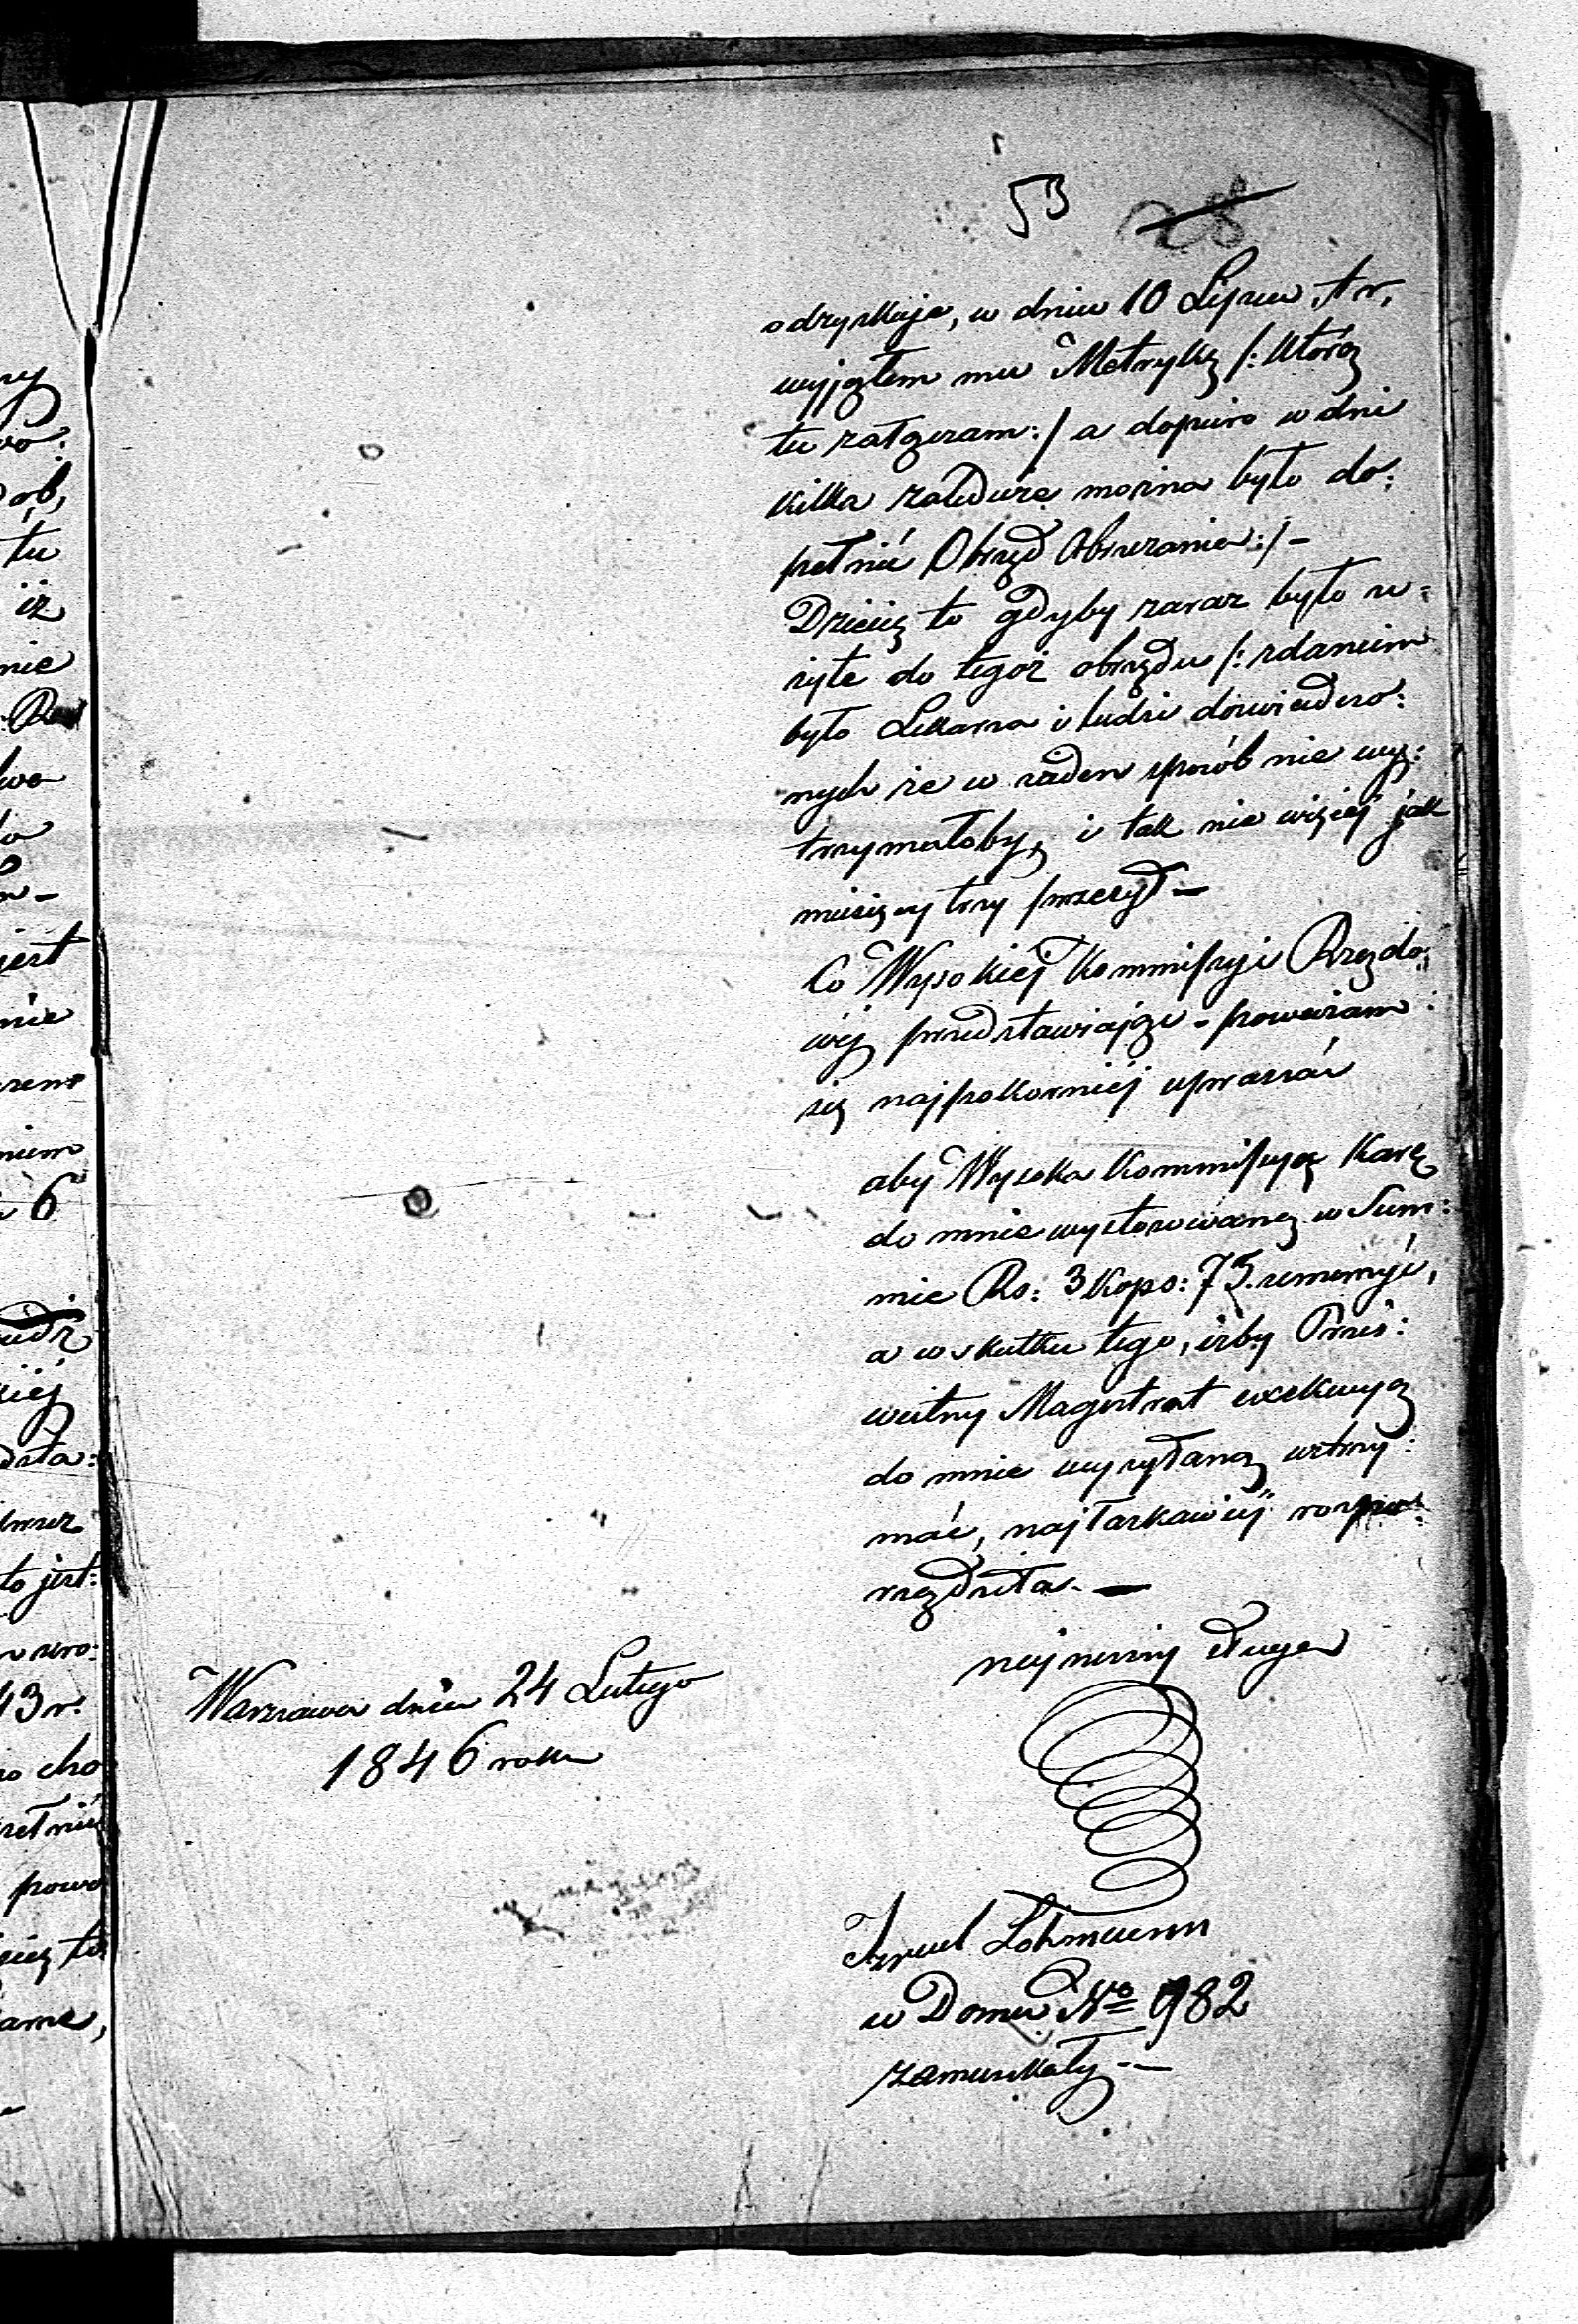 53 28
odzyskuje, w dniu 10 Lipca, t r,
wyjąłem mu Metrykę /: którą
tu załączam :/ a dopiero w dni
kilka zaledwie można było do:
pełnić Obrząd Obrzezania :/ -
Dziecię to gdyby zaraz było u:
żyte do tegoż obrzędu /: zdaniem
było Lekarza i ludzi doświadczo:
nych że w żaden sposób nie wy:
trzymałoby, i tak nie więcej jak
miesięcy trzy przeżył -
Co Wysokiej Kommissyi Rządo:
wéj przedstawiając - poważam:
się najpokorniéj upraszać
aby Wysoka Kommissya Karę
do mnie wystosowaną w Sum:
mie Rs: 3 kops: 75. umorzyć,
a w skutku tego, iżby Prześ:
wietny Magistrat exekucyą
do mnie wysyłaną wstrzy:
mać, najłaskawiéj rozpo:
rządziła. -
najniższy sługa
Warszawa dnia 24 Lutego
1846 roku
Izrael Lohmann
w Domu No 982
zamieszkały -
ry
wo:
ób,
tu
iż
nie
lwo
jest
nie
niem
6
kiéj
to jest:
43 r.
cho
pełnić
powo
to